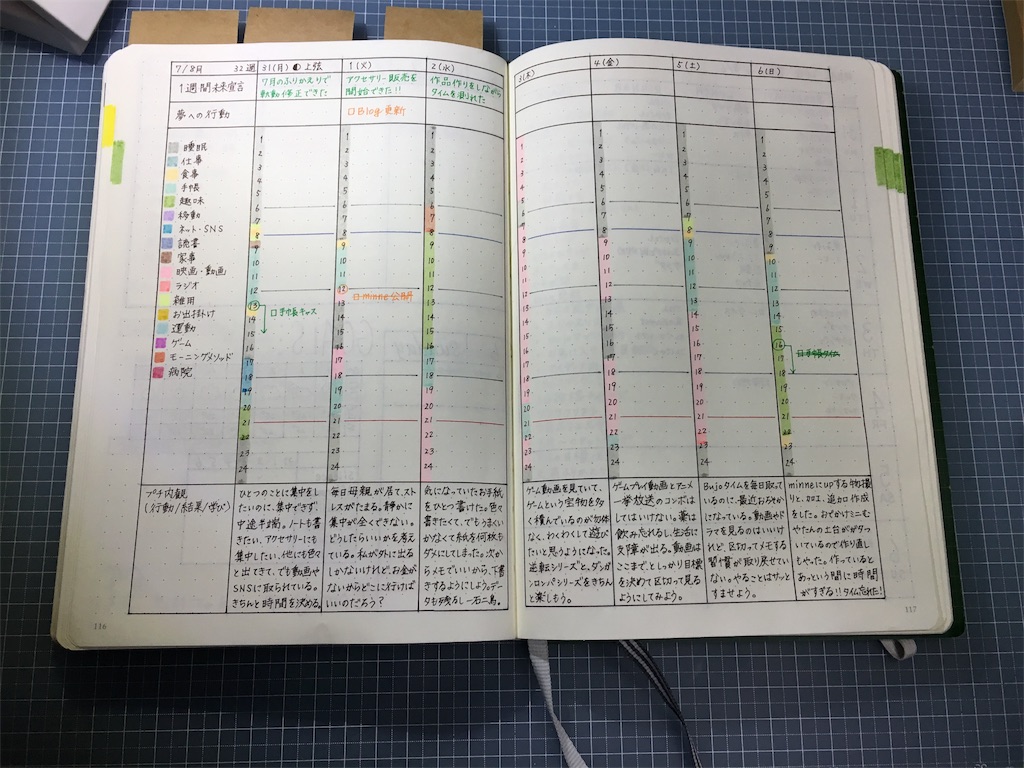 7/8月 32週
31(月) 上弦
1(火)
2(水)
3(木)
4(金)
5(土)
6(日)
1週間未来宣言
7月のふりかえりで
軌動修正できた
アクセサリー販売を
開始できた!!
作品作りをしながら
タイムを測れた
夢への行動
Blog更新
睡眠
仕事
食事
手帳
趣味
移動
ネット・SNS
読書
家事
映画・動画
ラジオ
雑用
お出掛け
運動
ゲーム
モーニングメソッド
病院
1
2
3
4
5
6
7
8
9
10
11
12
13
14
15
16
17
18
19
20
21
22
23
24
手帳キャス
1
2
3
4
5
6
7
8
9
10
11
12
13
14
15
16
17
18
19
20
21
22
23
24
minne公開
1
2
3
4
5
6
7
8
9
10
11
12
13
14
15
16
17
18
19
20
21
22
23
24
1
2
3
4
5
6
7
8
9
10
11
12
13
14
15
16
17
18
19
20
21
22
23
24
1
2
3
4
5
6
7
8
9
10
11
12
13
14
15
16
17
18
19
20
21
22
23
24
1
2
3
4
5
6
7
8
9
10
11
12
13
14
15
16
17
18
19
20
21
22
23
24
1
2
3
4
5
6
7
8
9
10
11
12
13
14
15
16
17
18
19
20
21
22
23
24
手帳タイム
プチ内観
(行動/結果/学び)
ひとつのことに集中をし
たいのに、集中できず、
中途半端。ノートも書
きたい、アクセサリーにも
集中したい、他にも色々
と出てきて、でも動画や
SNSに取られている。
きちんと時間を決める。
毎日母親が居て、スト
レスがたまる。静かに
集中が全くできない。
どうしたらいいかを考え
ている。私が外に出る
しかないけれど、お金が
ないからどこに行けば
いいのだろう?
気になっていたお手紙
をひとつ書けた。色々
書きたくて、でもうまくい
かなくて紙を何枚も
ダメにしてしまった。次か
らメモでいいから、下書
きするようにしよう。デー
タも残るし一石二鳥。
ゲーム動画を見ていて、
ゲームという宝物を多
く積んでいるのが勿体
なく、わくわくして遊び
たいと思うようになった。
逆転シリーズと、ダンガ
ンロンパシリーズをきちん
と楽しもう。
ゲームプレイ動画とアニメ
一挙放送のコンボは
してはいけない。薬は
飲み忘れるし、生活に
支障が出る。動画は
ここまで、としっかり目標
を決めて区切って見る
ようにしてみよう。
Bujoタイムを毎日取って
いるのに、最近おろそか
になっている。動画やド
ラマを見るのはいいけ
れど、区切ってメモする
習慣が取り戻せてい
ない。やることはサッと
すませよう。
minneにupする物撮
りと、加工、追加作成
をした。おでかけミニむ
やたんの土台がガタつ
いているので作り直し
もやった。作っていると
あっという間に時間
がすぎる!!タイム忘れた!
116
117